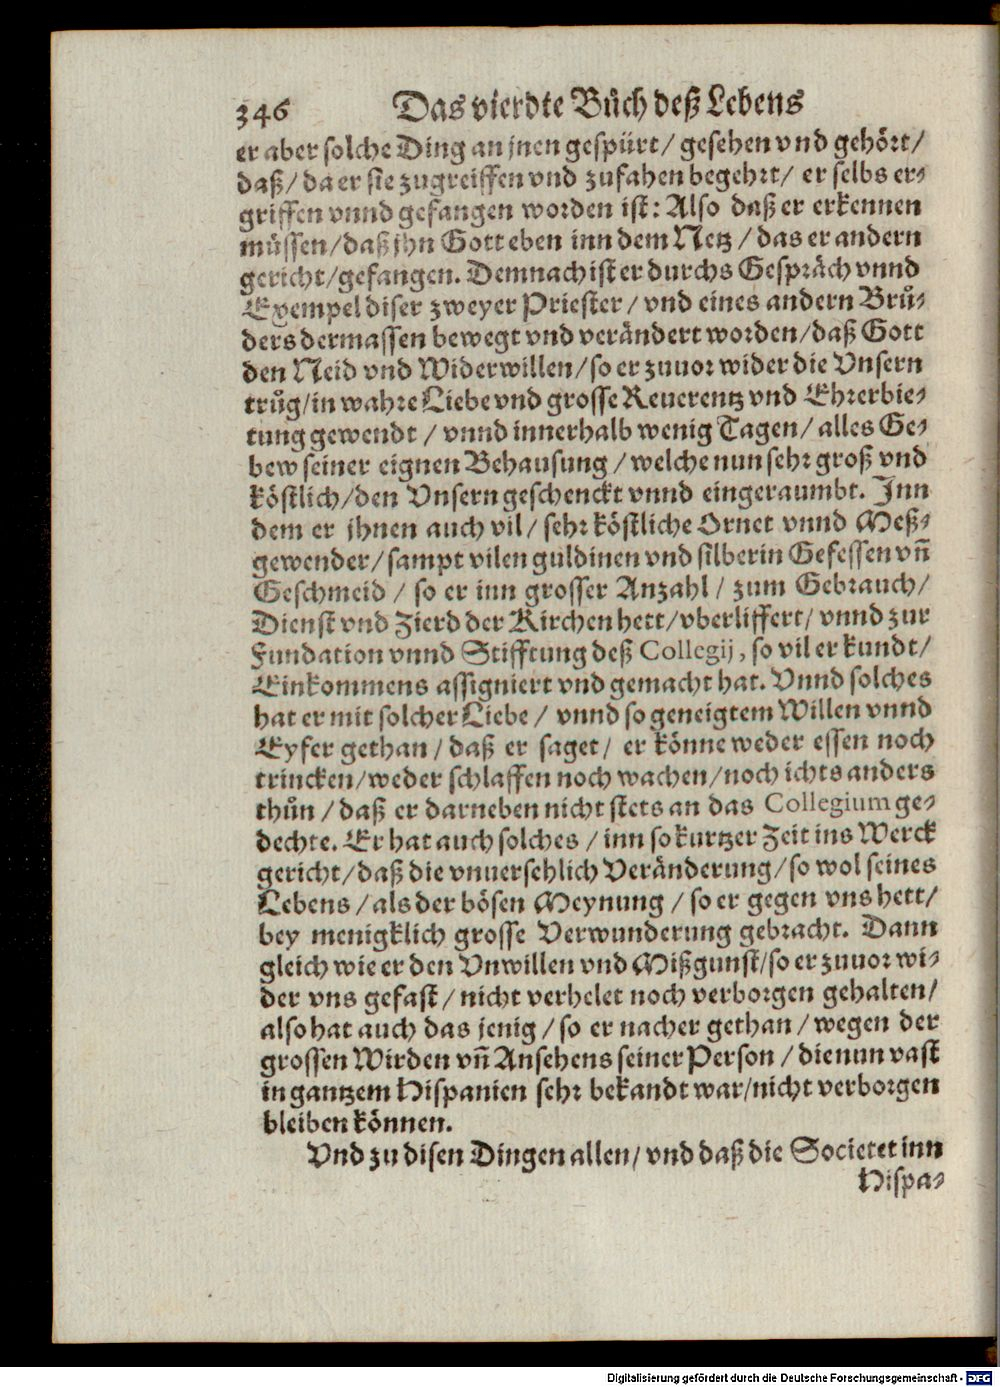 346 Das vierdte Bůch deß Lebens
er aber solche Ding an jnen gespürt/ gesehen vnd gehört/
daß/ da er sie zugreiffen vnd zufahen begehrt/ er selbs er-
griffen vnnd gefangen worden ist: Also daß er erkennen
müssen/daß jhn Gott eben inn dem Netz / das er andern
gericht/gefangen. Demnach ist er durchs Gespräch vnnd
Exempel diser zweyer Priester / vnd eines andern Brů-
ders dermassen bewegt vnd verändert worden/daß Gott
den Neid vnd Widerwillen/so er zuuor wider die Vnsern
trůg/in wahre Liebe vnd grosse Reuerentz vnd Ehrerbie-
tung gewendt / vnnd innerhalb wenig Tagen/ alles Ge-
bew seiner eignen Behausung /welche nun sehr groß vnd
köstlich/den Vnsern geschenckt vnnd eingeraumbt. Inn
dem er jhnen auch vil/ sehr köstliche Ornet vnnd Meß-
gewender/sampt vilen guldinen vnd silberin Gefessen vñ
Geschmeid / so er inn grosser Anzahl/ zum Gebrauch/
Dienst vnd Zierd der Kirchen hett/vberliffert/ vnnd zur
Fundation vnnd Stifftung deß Collegij, so vil er kundt/
Einkommens assigniert vnd gemacht hat. Vnnd solches
hat er mit solcher Liebe / vnnd so geneigtem Willen vnnd
Eyfer gethan/ daß er saget/ er könne weder essen noch
trincken/weder schlaffen noch wachen/noch ichts anders
thůn /daß er darneben nicht stets an das Collegium ge-
dechte. Er hat auch solches / inn so kurtzer Zeit ins Werck
gericht/daß die vnuersehlich Veränderung/so wol seines
Lebens /als der bösen Meynung /so er gegen vns hett/
bey menigklich grosse Verwunderung gebracht. Dann
gleich wie er den Vnwillen vnd Mißgunst/so er zuuor wi-
der vns gefast/nicht verhelet noch verborgen gehalten/
also hat auch das jenig/so er nacher gethan/wegen der
grossen Wirden vñ Ansehens seiner Person / die nun vast
in gantzem Hispanien sehr bekandt war/nicht verborgen
bleiben können.
Vnd zu disen Dingen allen/ vnd daß die Societet inn
Hispa-
Digitalisierung gefördert durch die Deutsche Forschungsgemeinschaft - DFG